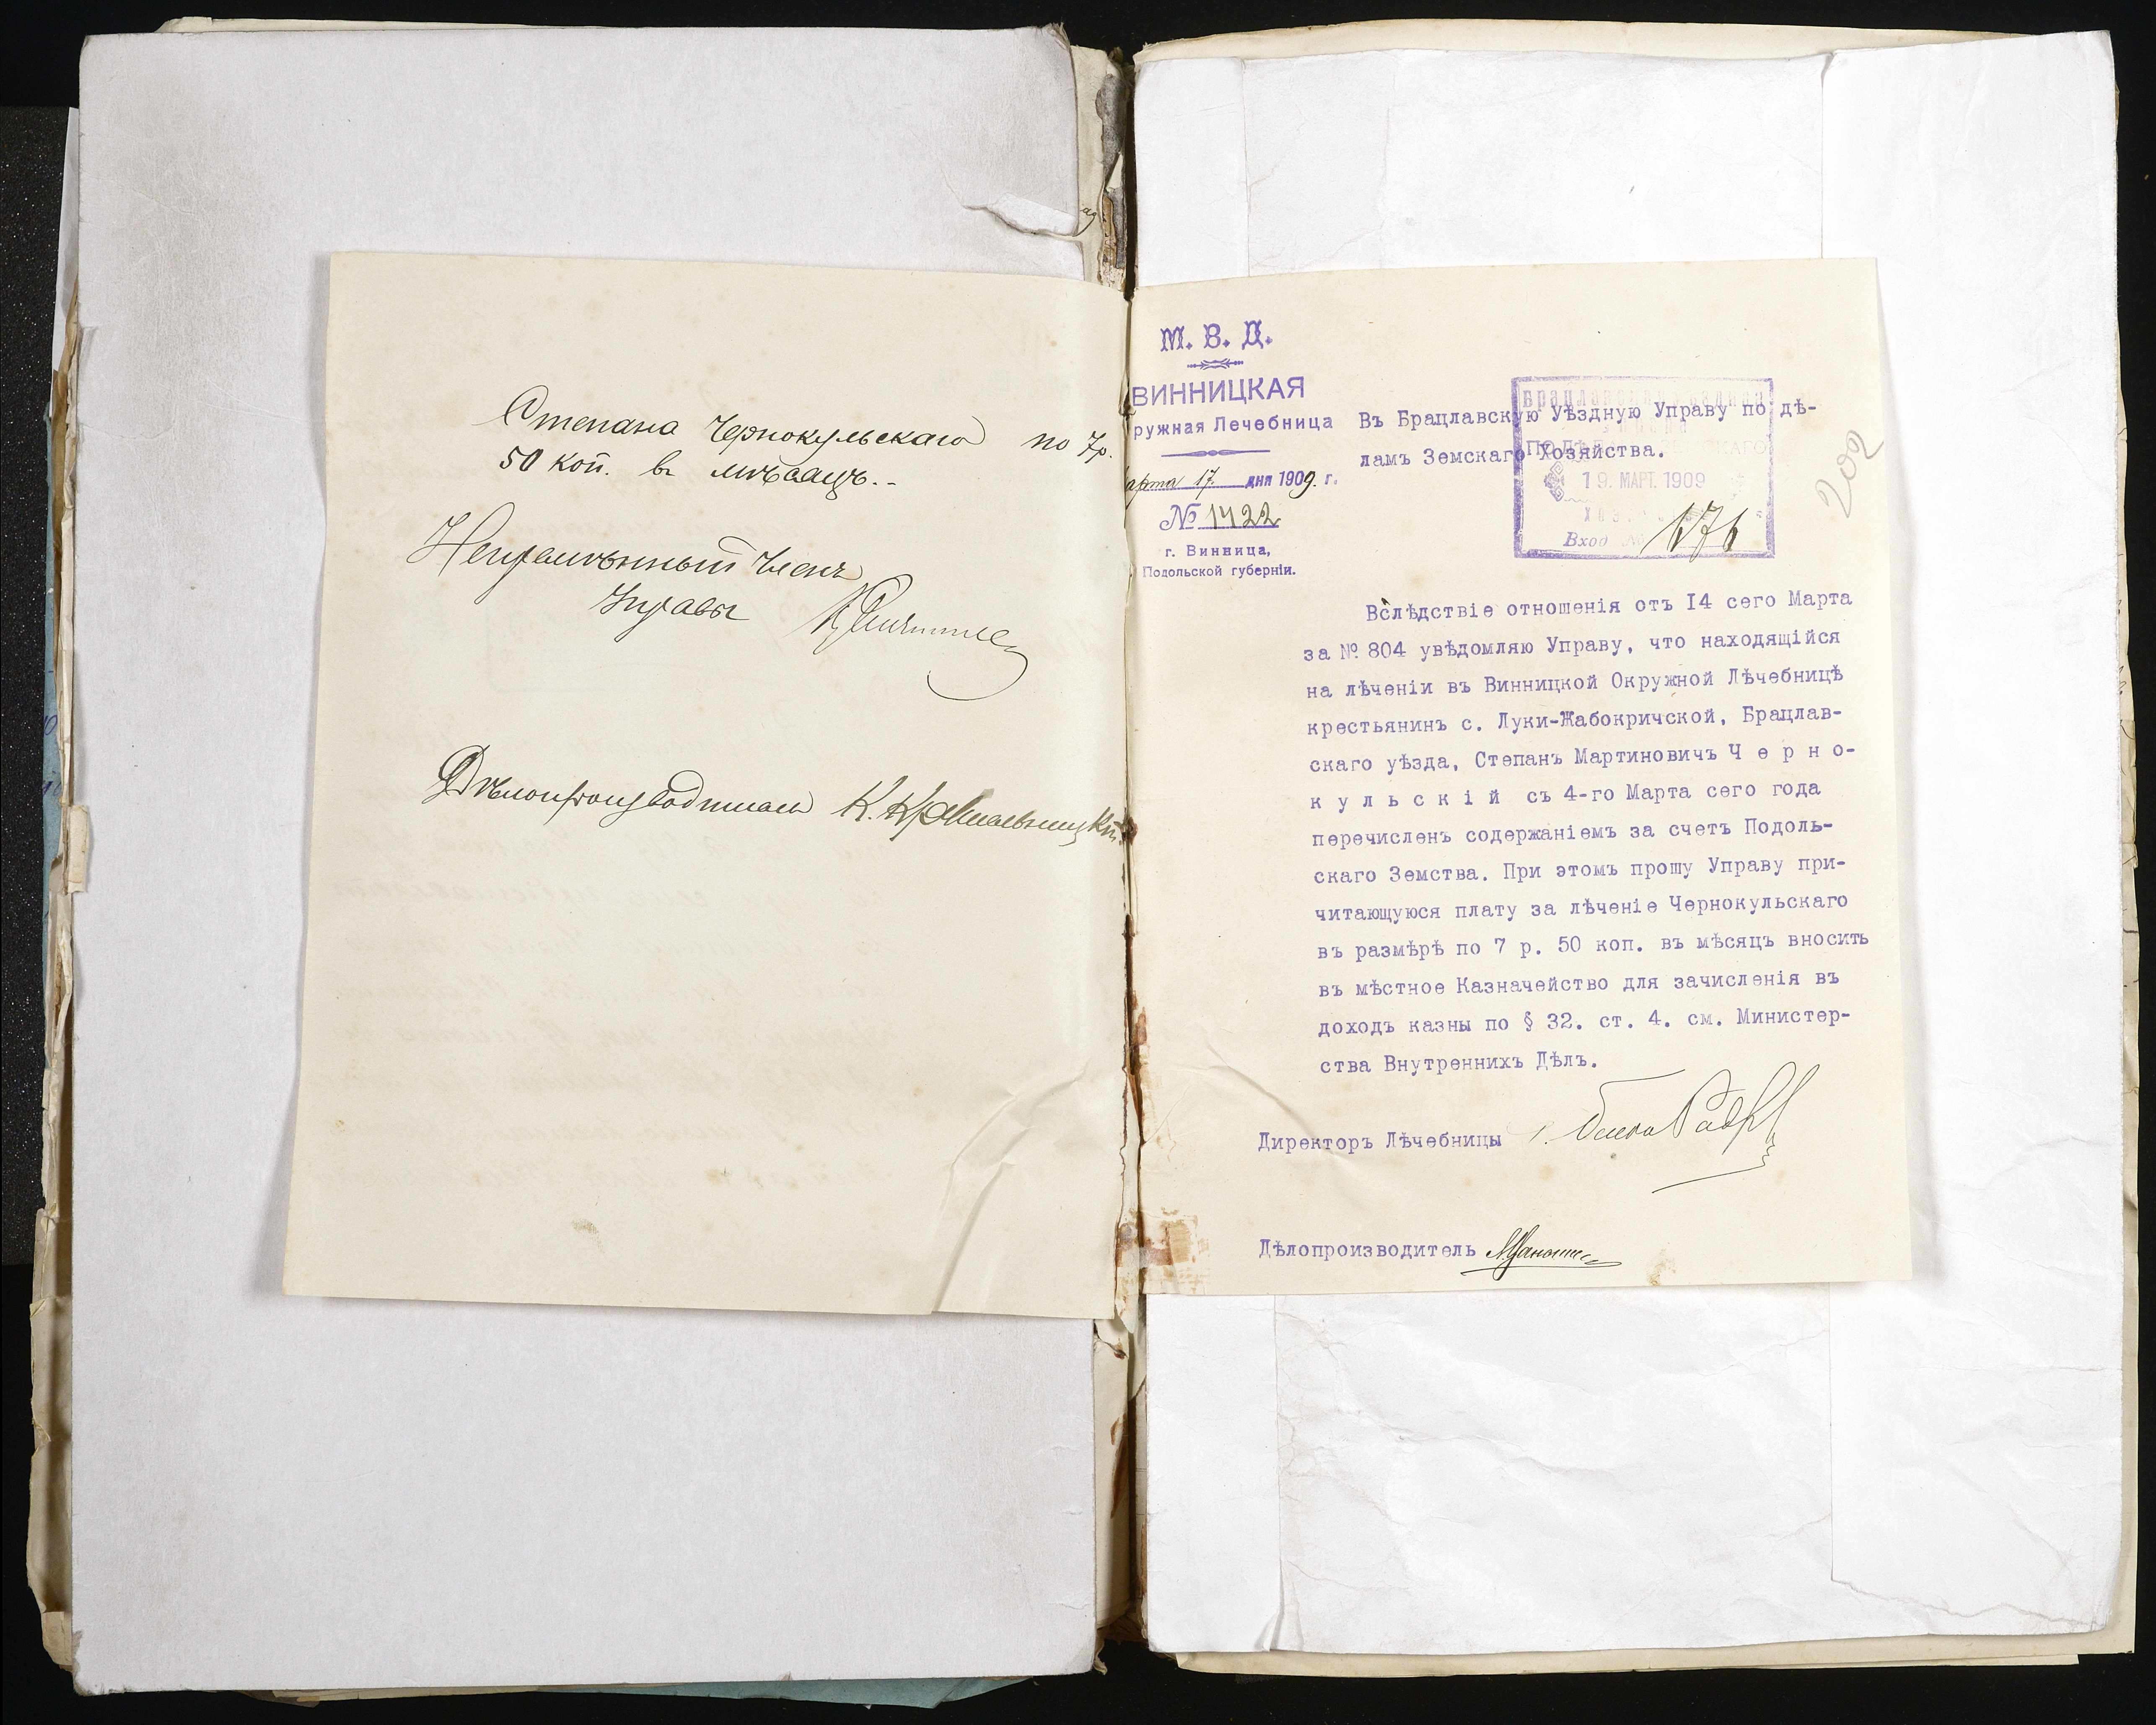 Степана Чернокульскаго по 7р.
50 коп. въ мѣсяцъ.-
Непремѣнный Членъ
Управы
Дѣлопроизводитель К.
М. В. Д.
ВИННИЦКАЯ
ружная Лечебница
арта 17. дня 1909. г.
№ 1422
г. Винница,
Подольской губерніи.
Въ Брацлавскую Уѣздную Управу по дѣ-
ламъ Земскаго Хозяйства.
19. МАРТ. 1909
Вход № 176
202
Вслѣдствіе отношенія отъ I4 сего Марта
за № 804 увѣдомляю Управу, что находящійся
на лѣченіи въ Винницкой Окружной Лѣчебницѣ
крестьянинъ с. Луки-Жабокричской, Брацлав-
скаго уѣзда, Степанъ Мартиновичъ Ч е р н о-
к у л ь с к і й съ 4-го Марта сего года
перечисленъ содержаніемъ за счетъ Подоль-
скаго Земства. При этомъ прошу Управу при-
читающуюся плату за лѣченіе Чернокульскаго
въ размѣрѣ по 7 р. 50 коп. въ мѣсяцъ вносить
въ мѣстное Казначейство для зачисленія въ
доходъ казны по § 32. ст. 4. см. Министер-
ства Внутреннихъ Дѣлъ.
Директоръ Лѣчебницы
Дѣлопроизводитель